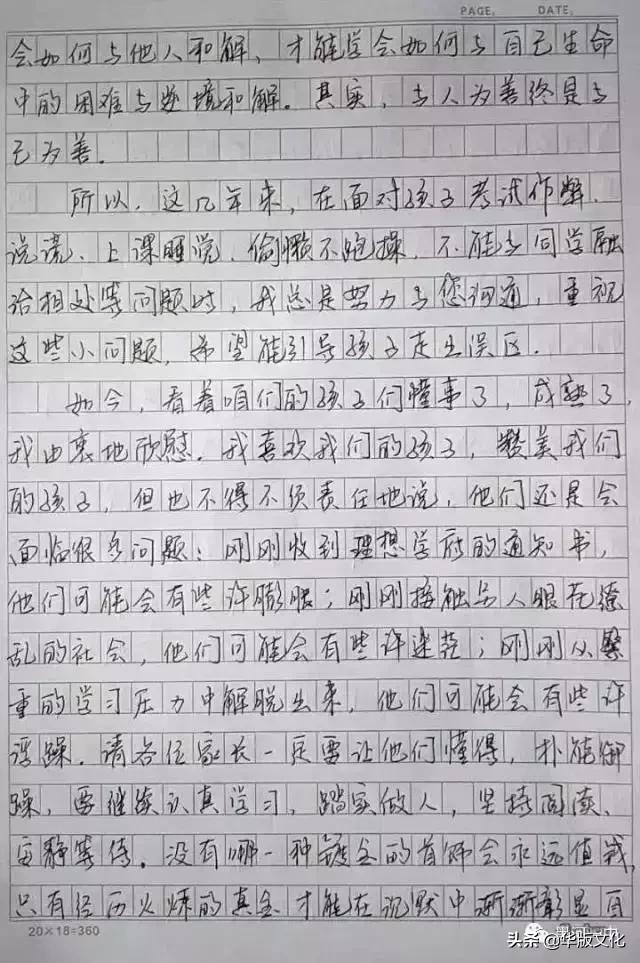 PAGE. DATE.
会如何与他人和解，才能学会如何与自己生命
中的困难与逆境和解。其实，与人为善终是与
己为善。
所以，这几年来，在面对孩子考试作弊、
说谎、上课睡觉、偷懒不跑操、不能与同学融
洽相处等问题时，我总是努力与您沟通，重视
这些小问题，希望能引导孩子走出误区。
如今，看着咱们的孩子们懂事了，成熟了，
我由衷地欣慰。我喜欢我们的孩子，赞美我们
的孩子，但也不得不负责任地说，他们还是会
面临很多问题：刚刚收到理想学府的通知书，
他们可能会有些许膨胀；刚刚接触令人眼花缭
乱的社会，他们可能会有些许迷茫；刚刚从繁
重的学习压力中解脱出来，他们可能会有些许
浮躁。请各位家长一定要让他们懂得，朴能御
躁，要继续认真学习，踏实做人，坚持阅读、
安静等待。没有哪一种镀金的首饰会永远值钱，
只有经历火炼的真金才能在沉默中渐渐彰显自
20×18=360
头条@华版文化